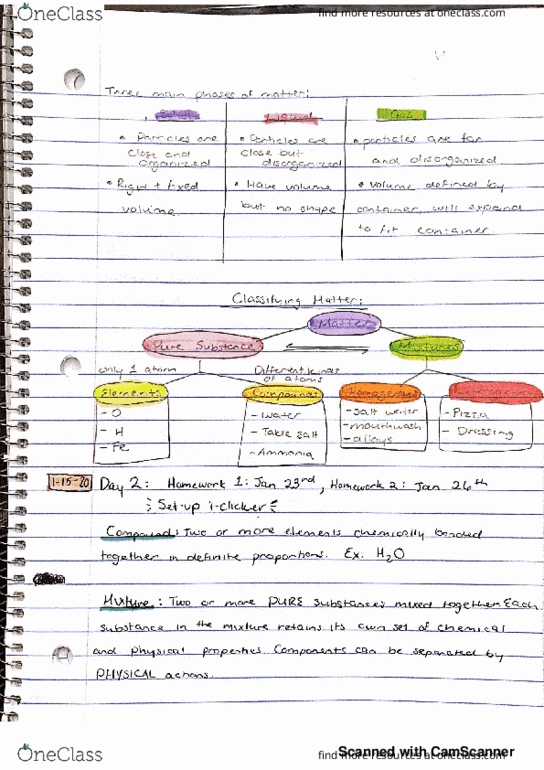 OneClass
find more resources at oneclass.com
Three main phases of matter:
Solid Liquid Gas
• Particles are close and organized
• Rigid + fixed volume
• Particles are close but disorganized
• Have volume but no shape
• particles are far and disorganized
• volume defined by container, will expand to fit container
Classifying Matter:
Matter
Pure Substance
Mixtures
only 1 atom
Different kinds of atoms
Elements
- O
- H
- Fe
Compounds
- Water
- Table salt
- Ammonia
Homogenous
- Salt water
- mouthwash
- alloys
- Pizza
- Dressing
1-15-20 Day 2: Homework 1: Jan 23rd, Homework 2: Jan 26th
Set-up i-clicker
Compound: Two or more elements chemically bonded
together in definite proportions. Ex: H2O
Mixture: Two or more PURE substances mixed together. Each
substance in the mixture retains its own set of chemical
and physical properties. Components can be separated by
PHYSICAL actions.
OneClass
find more resources at oneclass.com
Scanned with CamScanner